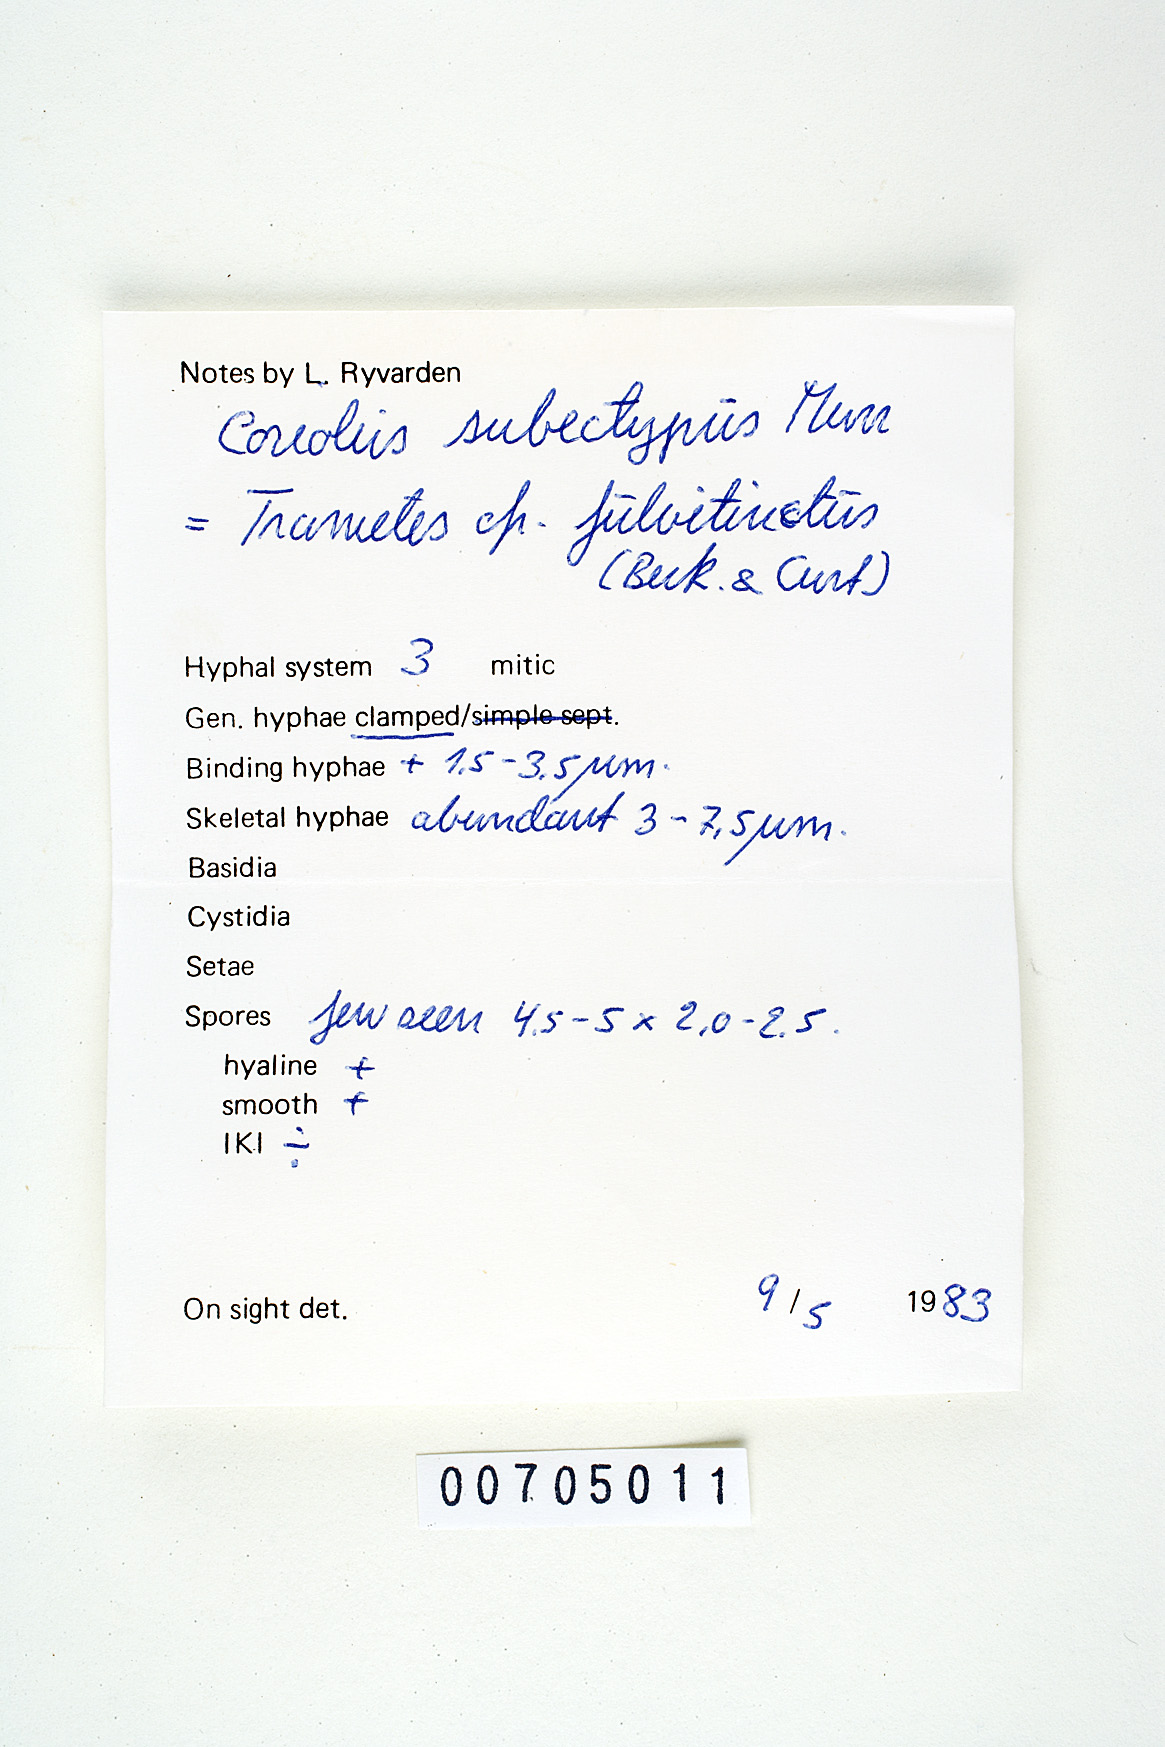 Notes by L. Ryvarden
Coriolus subectypus Murr
= Trametes cfr. fulvitinctus
(Berk. & Curt)
Hyphal system 3 mitic
Gen. hyphae clamped/simple sept.
Binding hyphae + 1.5-3.5 µm.
Skeletal hyphae abundant 3-7,5 µm.
Basidia
Cystidia
Setae
Spores few seen 4.5-5 x 2,0-2.5.
hyaline +
smooth +
IKI ÷
On sight det. 9/5 1983
00705011